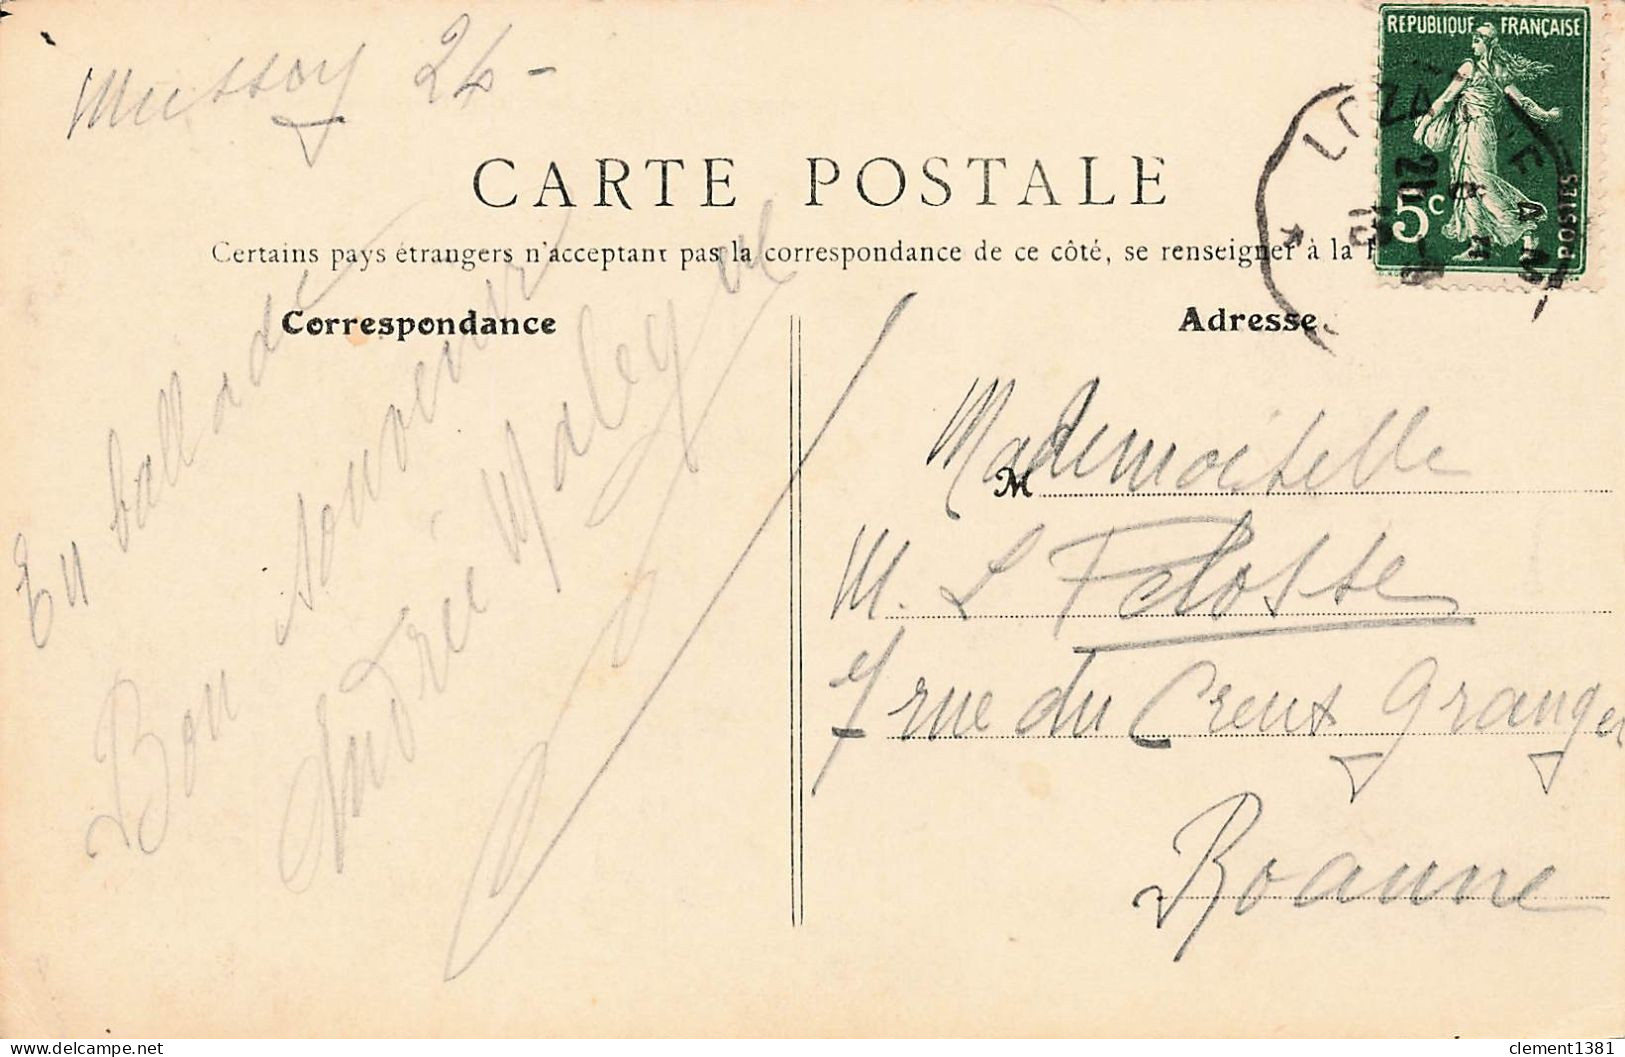 Mussy 24 -
REPUBLIQUE FRANÇAISE
5c
POSTES
CARTE POSTALE
Certains pays étrangers n'acceptant pas la correspondance de ce côté, se renseigner à la
Correspondance
Adresse
En ballade
Bon souvenir
Andrée
Mademoiselle
M
M. L Pelosse
7 rue du Creux Granger
Roanne
clement1381